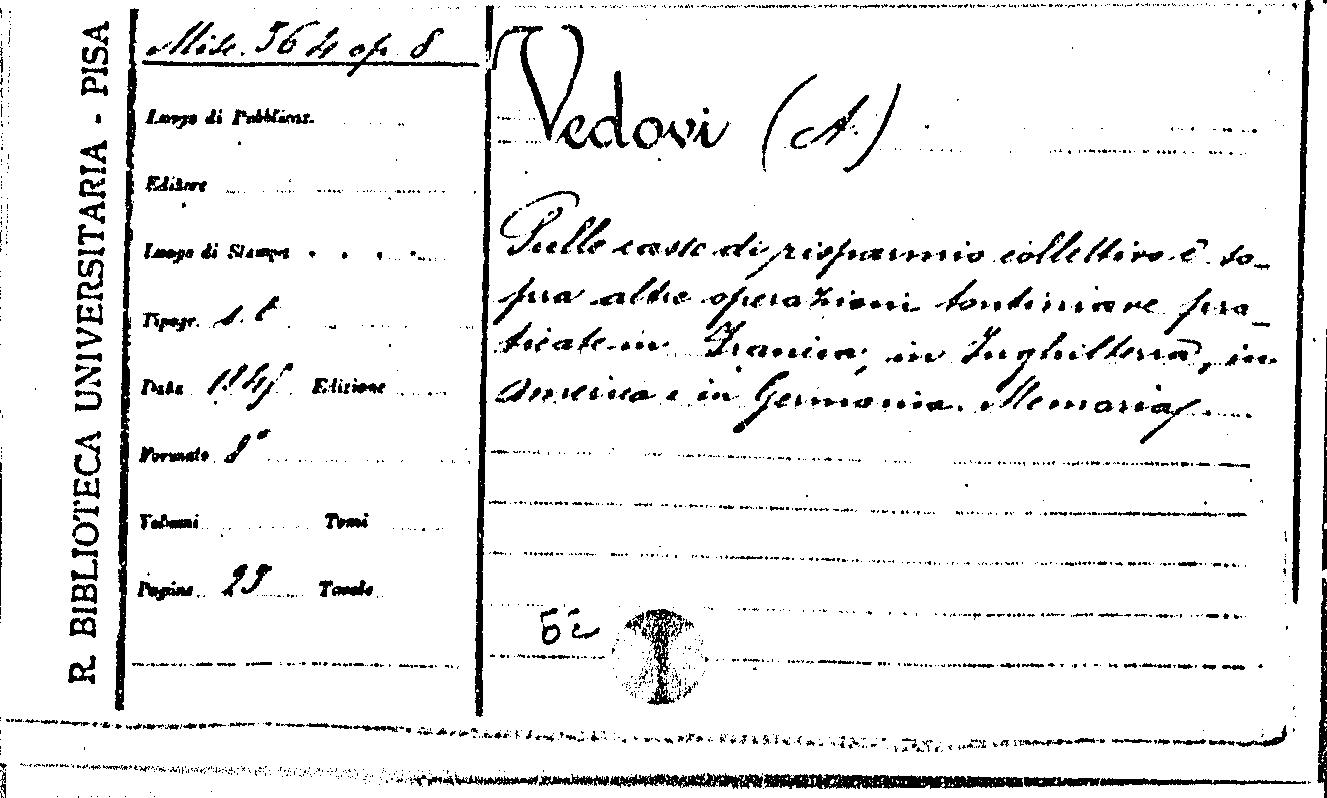 R. BIBLIOTECA UNIVERSITARIA - PISA
Misc. 564 op. 8
Luogo di Pubblicaz.
Editore
Luogo di Stampa
Tipogr. s. t.
Data Edizione
Formato 8°
Volumi Tomi
Pagine Tavole
Vedovi (A.)
Sulle casse di risparmio collettivo e so-
pra altre operazioni tontiniare pra-
ticate in Francia, in Inghilterra, in
America e in Germania. Memoria